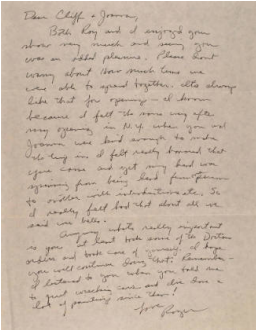 Dear Cliff + Joanna,
Both Roy and I enjoyed your
show very much and seeing you
was an added pleasure. Please don't
worry about how much time we
were able to spend together. It's always
like that for openings - I know
because I felt the same way after
my opening in N.Y. when you and
Joanna was kind enough to make
the trip and I felt really honored that
you came and yet my head was
spinning from being from person
to another with introductions etc. So
I really felt bad that about all we
said was hello.
Anyway what's really important
is you. At least took some of the Doctors
orders and took care of yourself. I hope
you will continue doing that. Remember -
I listened to you when you told me
to quit wrecking cars and I've done a
lot of painting since then!
Love
Roger